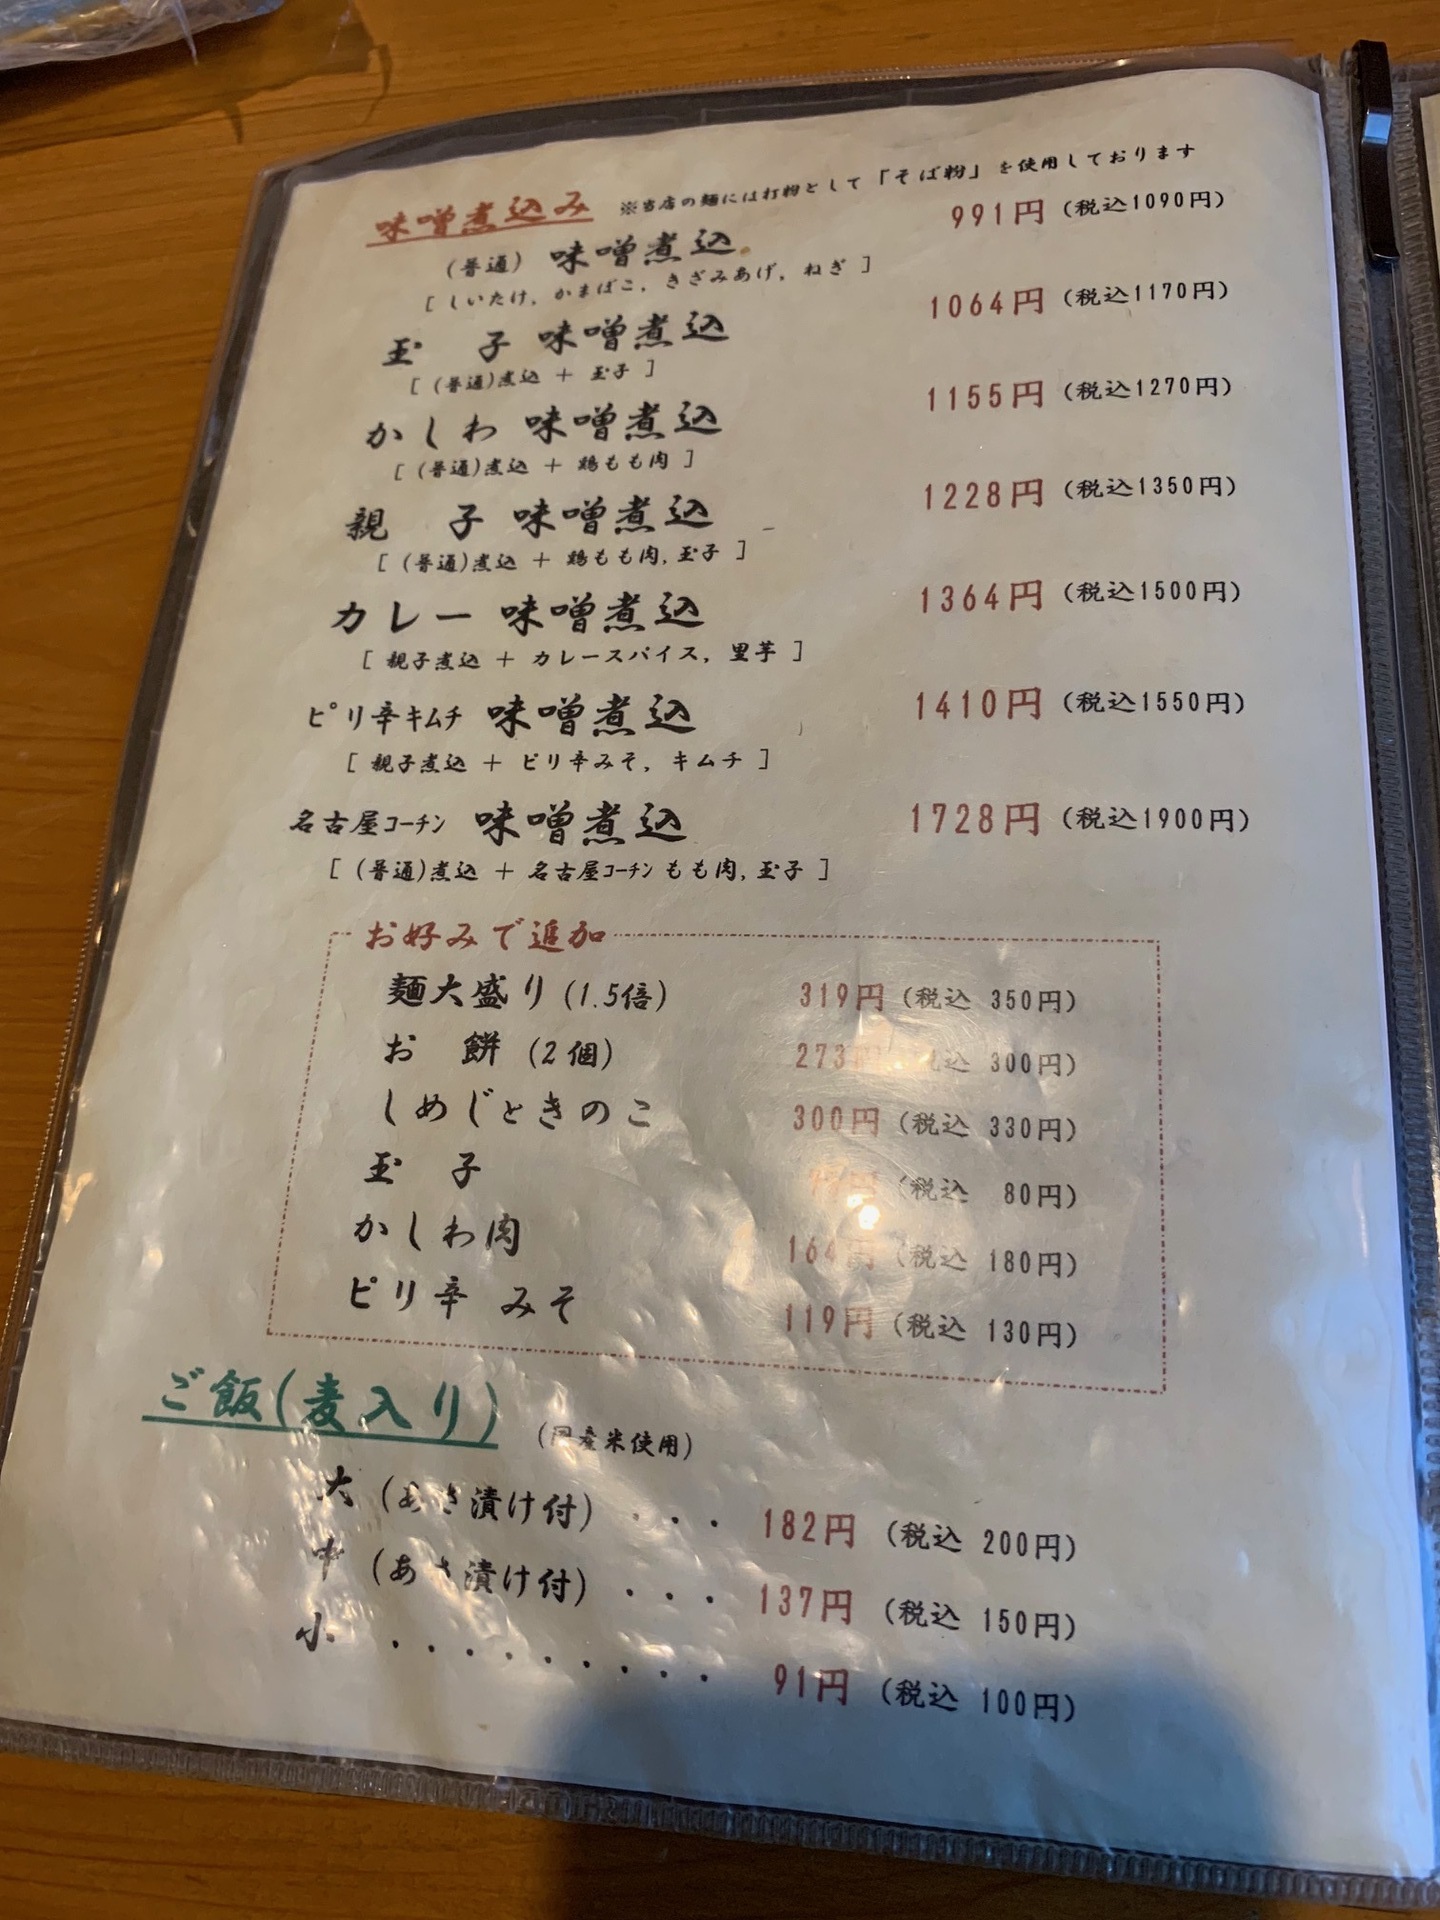 味噌煮込み ※当店の麺には打粉として「そば粉」を使用しております
(普通) 味噌煮込 991円 (税込1090円)
[ しいたけ, かまぼこ, きざみあげ, ねぎ ]
玉 子 味噌煮込 1064円 (税込1170円)
[ (普通)煮込 + 玉子 ]
かしわ 味噌煮込 1155円 (税込1270円)
[ (普通)煮込 + 鶏もも肉 ]
親 子 味噌煮込 1228円 (税込1350円)
[ (普通)煮込 + 鶏もも肉, 玉子 ]
カレー 味噌煮込 1364円 (税込1500円)
[ 親子煮込 + カレースパイス, 里芋 ]
ピリ辛キムチ 味噌煮込 1410円 (税込1550円)
[ 親子煮込 + ピリ辛みそ, キムチ ]
名古屋コーチン 味噌煮込 1728円 (税込1900円)
[ (普通)煮込 + 名古屋コーチンもも肉, 玉子 ]
お好みで追加
麺大盛り (1.5倍) 319円 (税込 350円)
お 餅 (2個) 273円 (税込 300円)
しめじときのこ 300円 (税込 330円)
玉 子 (税込 80円)
かしわ肉 164円 (税込 180円)
ピリ辛 みそ 119円 (税込 130円)
ご飯(麦入り) (国産米使用)
大 (あさ漬け付) ・・・ 182円 (税込 200円)
中 (あさ漬け付) ・・・ 137円 (税込 150円)
小 ・・・・・・・・・ 91円 (税込 100円)